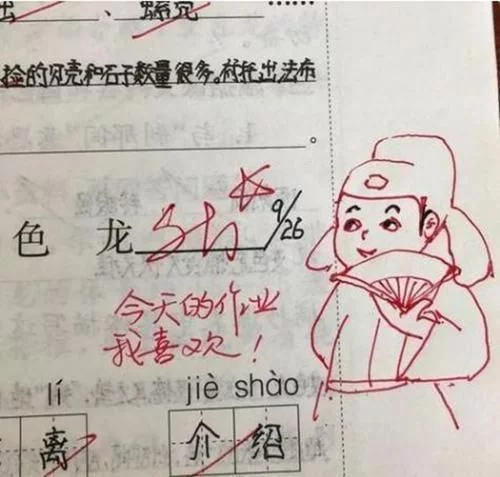 、螺壳……
捡的贝壳和石子数量很多。衬托出法布
。
色 龙
9/26
今天的作业
我喜欢！
lí jiè shào
离 介绍